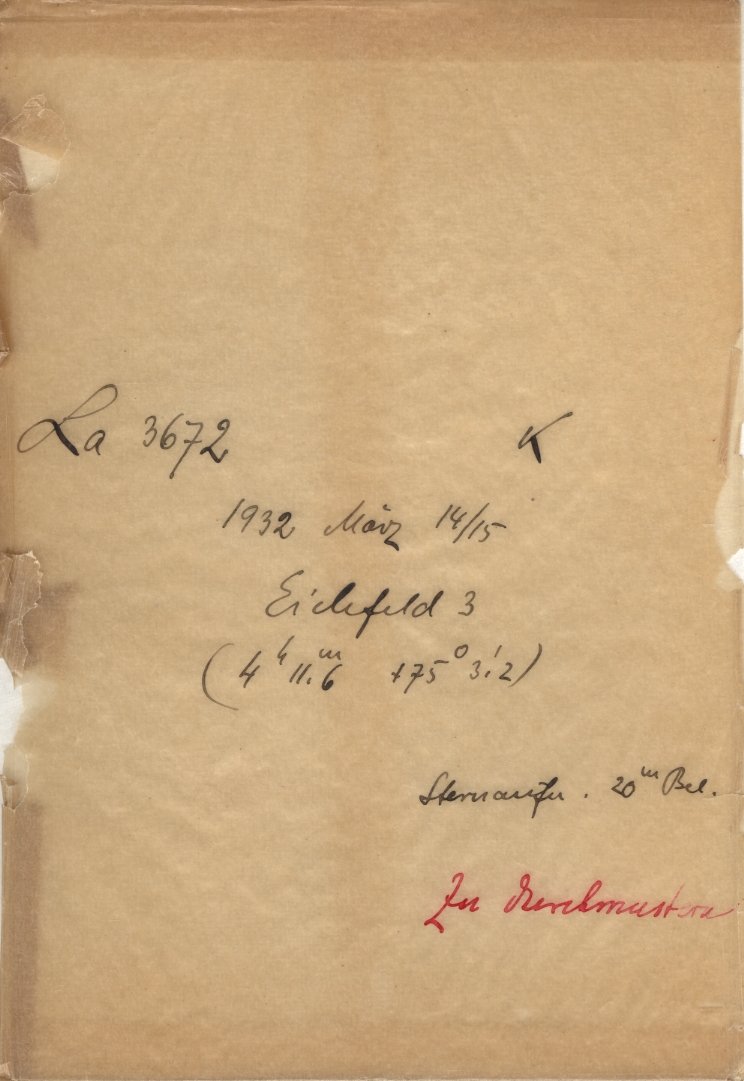 La 3672 K
1932 März 14/15
Eichfeld 3
(4ʰ 11.ᵐ6 +75° 3.'2)
Sternaufn. 20ᵐ Bel.
Zu durchmustern